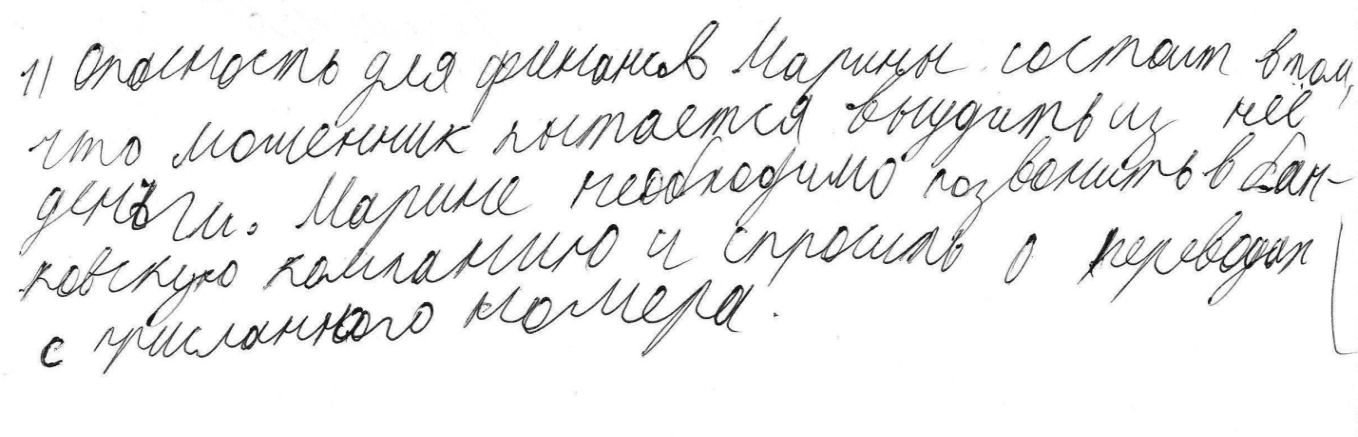 1) Опасность для финансов Марины состоит в том,
что мошенник пытается вынудить из неё
деньги. Марине необходимо позвонить в бан-
ковскую компанию и спросить о переводах
с присланного номера.